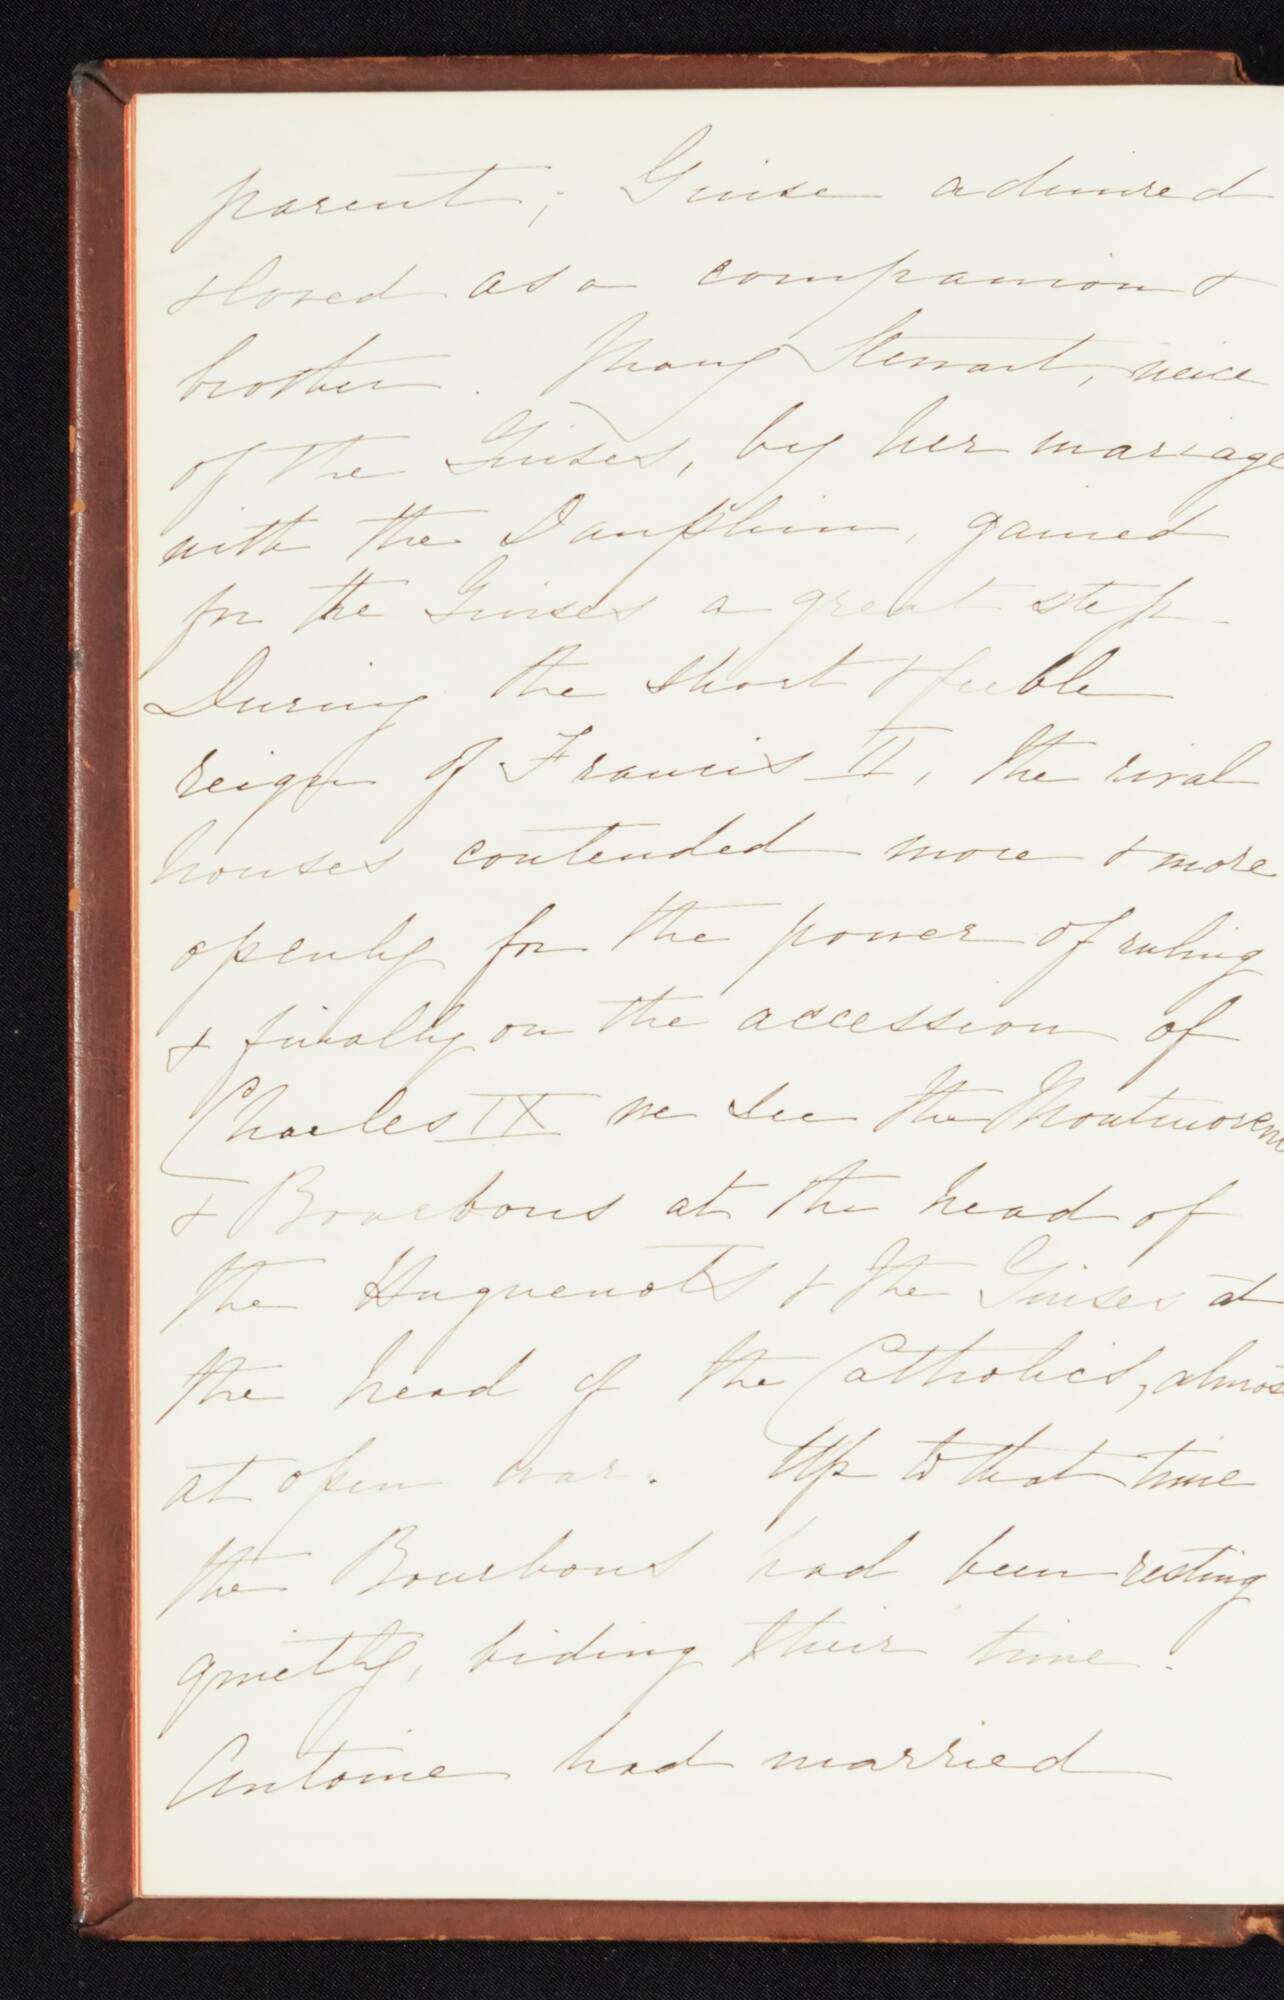 parent; Guise admired
& loved as a companion &
brother. Mary Stewart, neice
of the Guises, by her mariage
with the Dauphin, gained
for the Guises a great step.
During the short & feeble
reign of Francis II, the rival
houses contended more & more
openly for the power of ruling
& finally on the accession of
Charles IX we see the Montmorenc
& Bourbons at the head of
the Huguenots & the Guises at
the head of the Catholics, almos
at open war. Up to that time
the Bourbons had been resting
quietly, biding their time.
Antoine had married